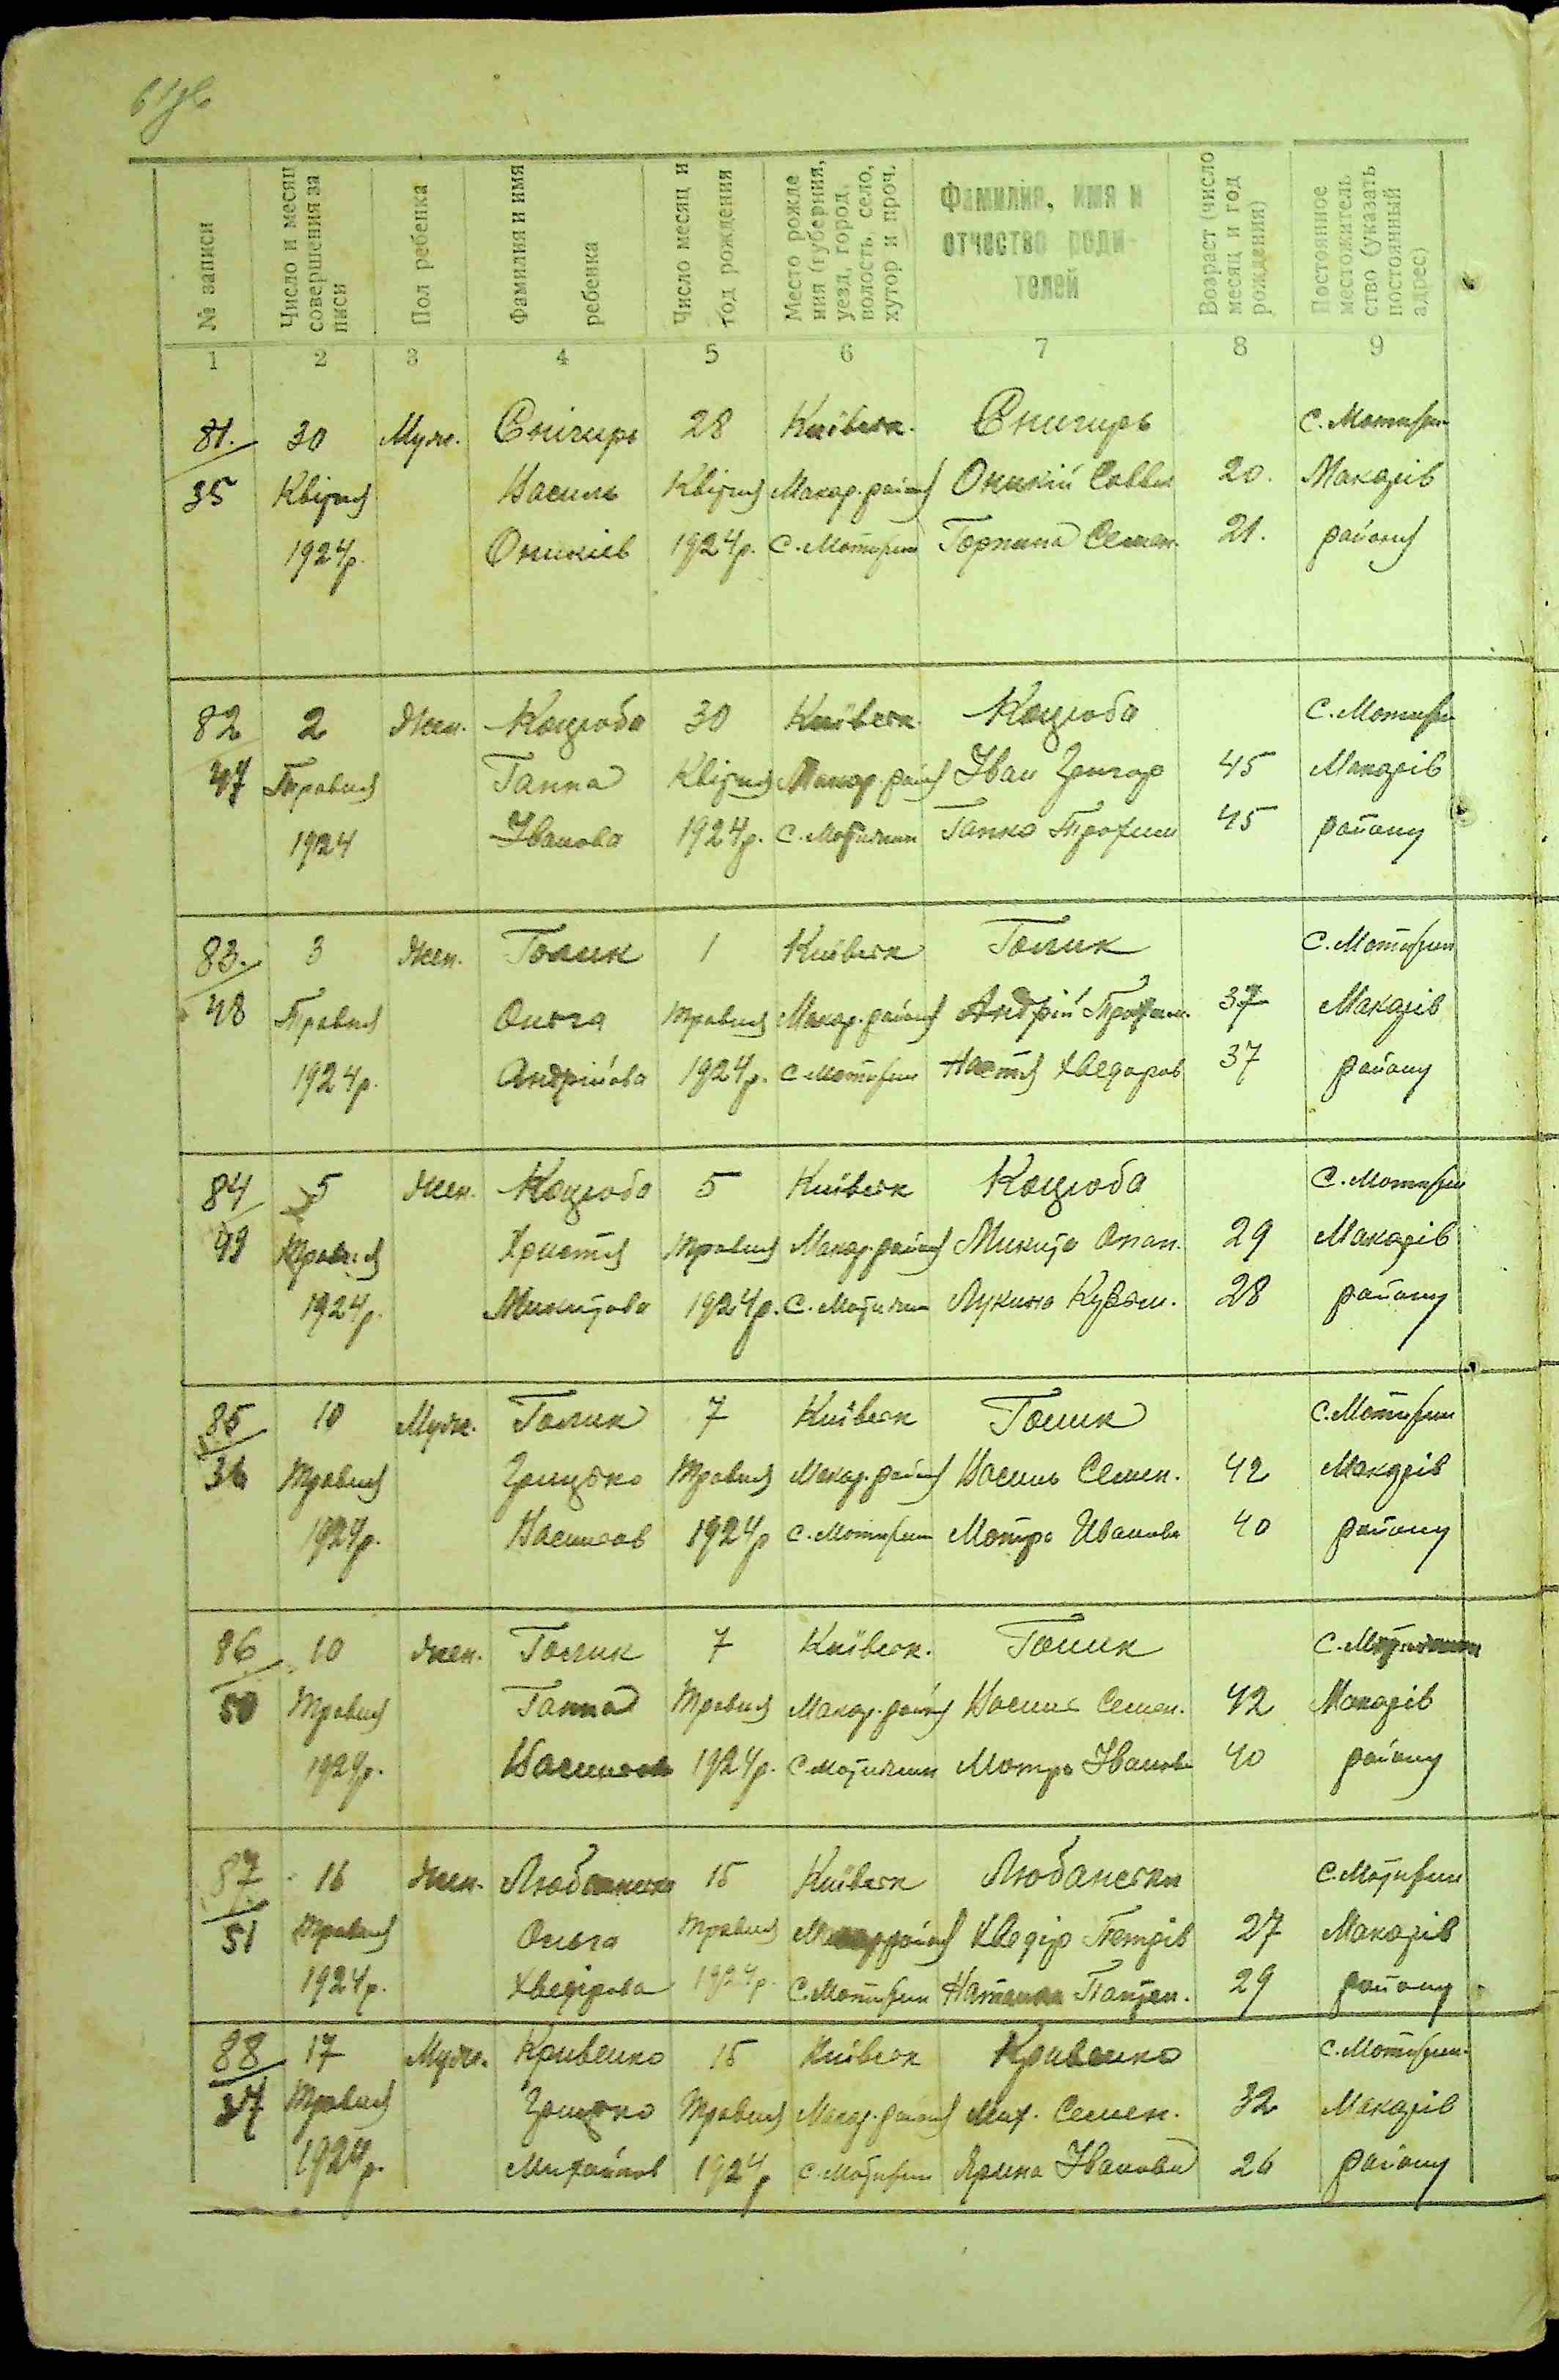 № записи
Число и месяц совершения записи
Пол ребенка
Фамилия и имя ребенка
Число месяц и год рождения
Место рождения (губерния, уезд, город, волость, село, хутор и проч.
Фамилия, имя и отчество родителей
Возраст (число месяц и год рождения)
Постоянное местожительство (указать постоянный адрес)
1 2 3 4 5 6 7 8 9
81. 30 Муж. Снігирь 28 Київськ. Снигирь с. Мотижин
35 Квітня Василь Квітня Макар. району Оникій Савви 20. Макарів
1924р. Оникіев 1924р. с. Мотижин Горпина Семен. 21. району
82 2 Жен. Коцюба 30 Київськ. Коцюба с. Мотижин
47 Травня Ганна Квітня Макар. район Іван Григор 45 Макарів
1924 Іванова 1924р. с. Мотижин Ганна Трофим 45 району
83. 3 Жен. Голик 1 Київськ Голик с. Мотижин
48 Травня Ольга Травня Макар. району Андрій Трофим. 37 Макарів
1924р. Андріова 1924р. с Мотижин Настя Хведоров 37 району
84 5 Жен. Коцюба 5 Київськ Коцюба с. Мотижин
49 Травня Христя Травня Макар. району Микита Опан. 29 Макарів
1924р. Микитова 1924р. с. Мотижин Лукина Кузьм. 28 району
85 10 Муж. Голик 7 Київськ Голик с. Мотижин
36 Травня Грицько Травня Макар. району Василь Семен. 42 Макарів
1924р. Васильов 1924р с. Мотижин Мотря Иванова 40 району
86 10 Жен. Голик 7 Київськ. Голик с. Мотижин
50 Травня Ганна Травня Макар. району Василь Семен. 42 Макарів
1924р. Васильова 1924р. с Мотижин Мотря Іванова 40 району
87 16 Жен. 15 Київськ с. Мотижин
51 Травня Ольга Травня Макар району Хведір Петрів 27 Макарів
1924р. Хведірова 1924р. с. Мотижин 29 району
88 17 Муж. Кривенко 15 Київськ Кривенко с. Мотижин.
37 Травня Грицько Травня Макар. району Мих. Семен. 32 Макарів
1924р. Михайлов 1924р с. Мотижин Ярина Іванова 26 району